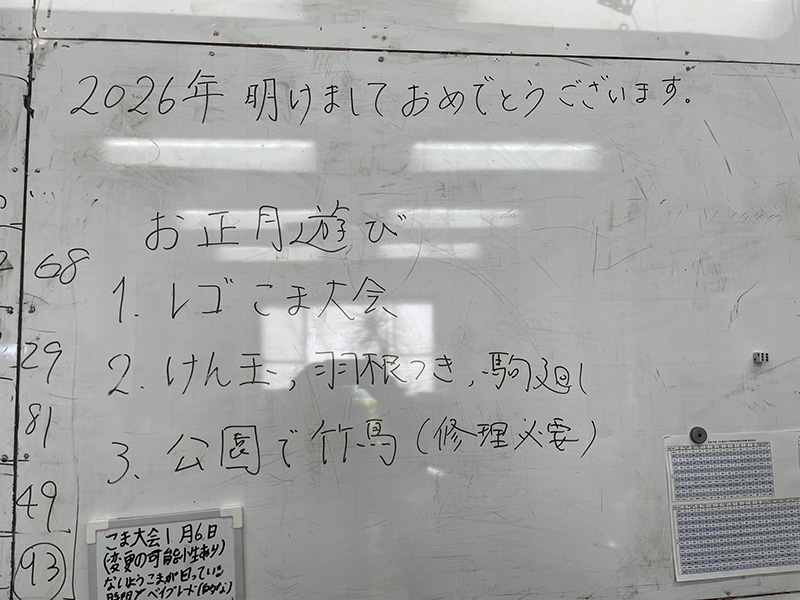 2026年 明けましておめでとうございます。
お正月遊び
1. レゴこま大会
2. けん玉, 羽根つき, 駒廻し
3. 公園で竹馬(修理必要)
68
29
81
49
93
こま大会1月6日
(変更の可能性あり)
ないようこまが回っている